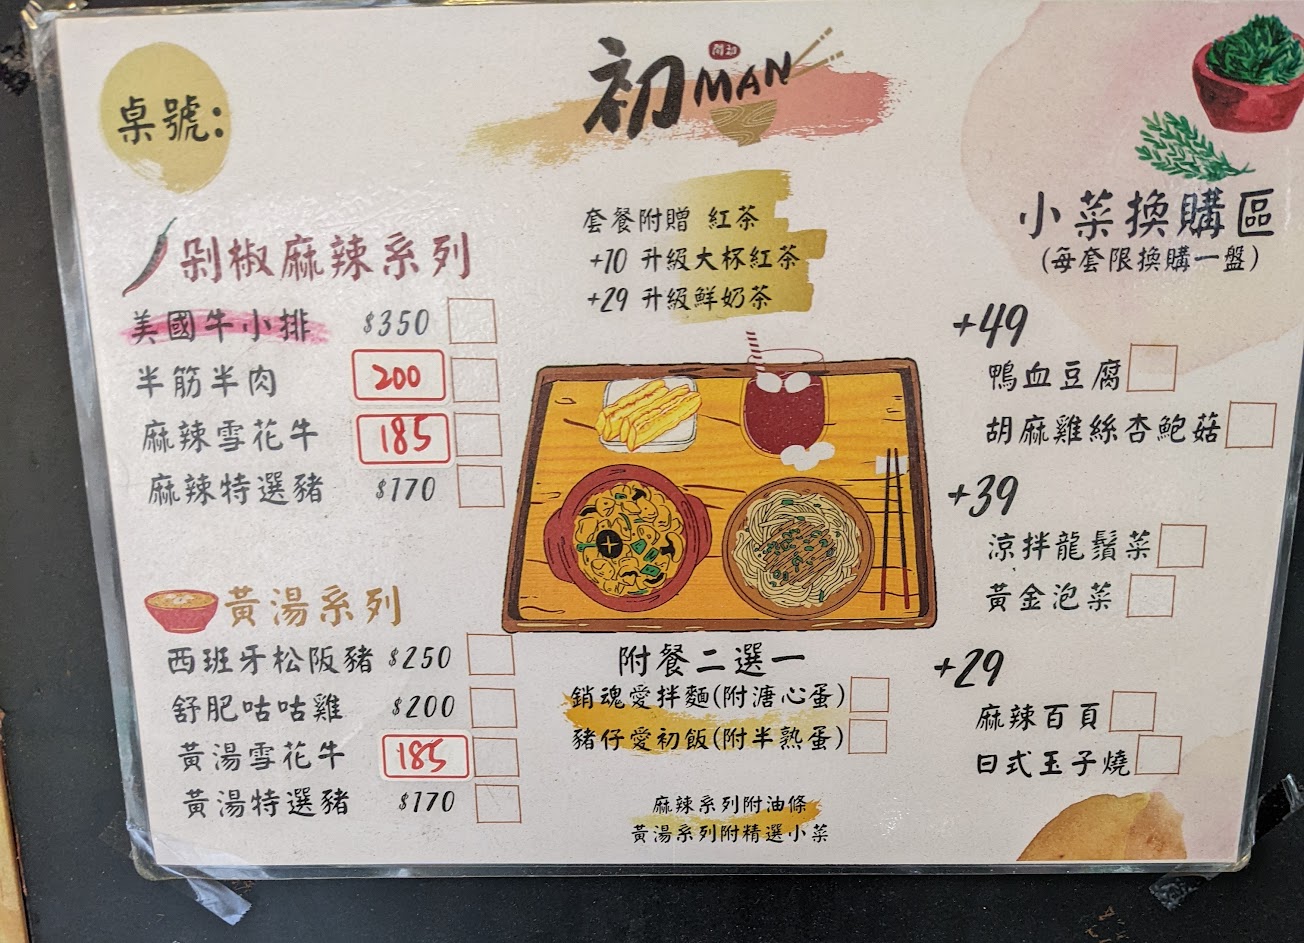 桌號:
初MAN
剁椒麻辣系列
美國牛小排 $350
半筋半肉 200
麻辣雪花牛 185
麻辣特選豬 $170
黃湯系列
西班牙松阪豬 $250
舒肥咕咕雞 $200
黃湯雪花牛 185
黃湯特選豬 $170
套餐附贈 紅茶
+10 升級大杯紅茶
+29 升級鮮奶茶
附餐二選一
銷魂愛拌麵(附溏心蛋)
豬仔愛初飯(附半熟蛋)
麻辣系列附油條
黃湯系列附精選小菜
小菜換購區
(每套限換購一盤)
+49
鴨血豆腐
胡麻雞絲杏鮑菇
+39
涼拌龍鬚菜
黃金泡菜
+29
麻辣百頁
日式玉子燒